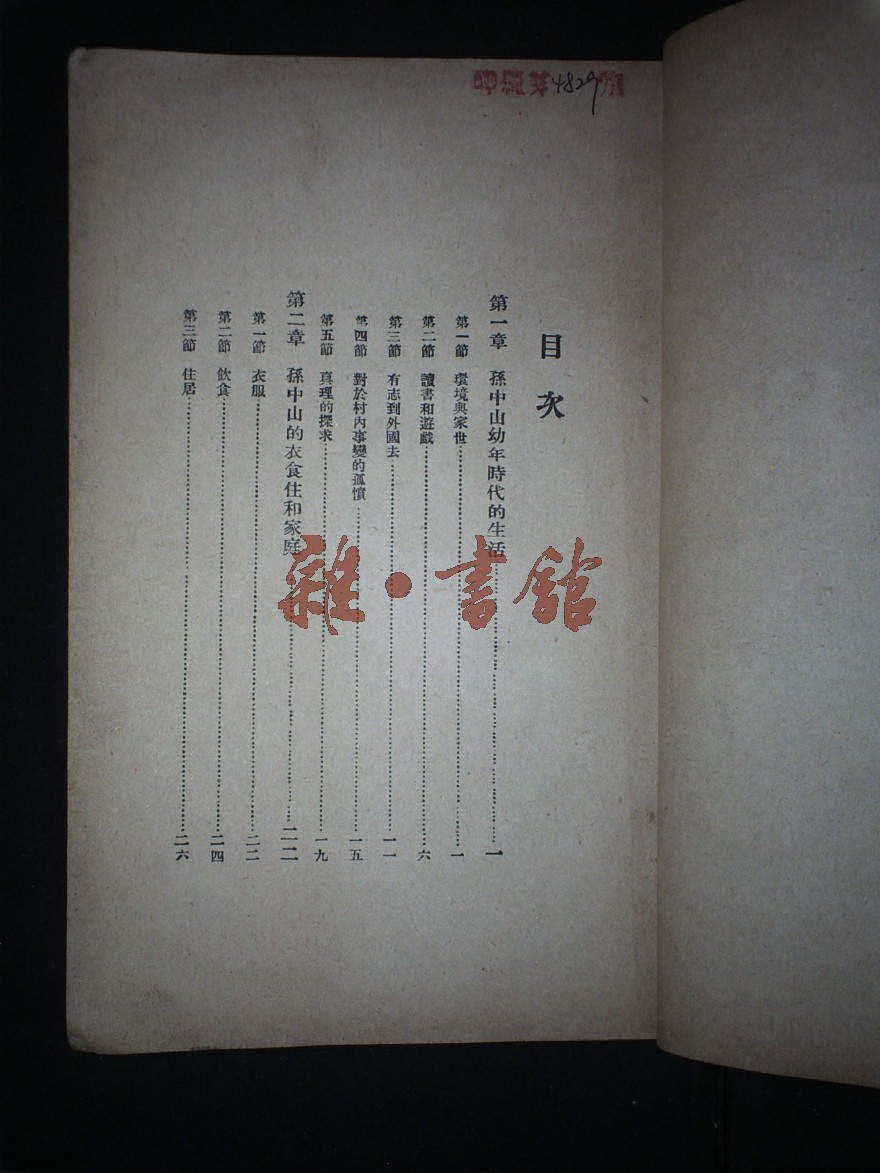 目次
第一章 孫中山幼年時代的生活……一
第一節 環境與家世……一
第二節 讀書和遊戲……六
第三節 有志到外國去……一一
第四節 對於村內事變的孤憤……一五
第五節 真理的探求……一九
第二章 孫中山的衣食住和家庭……二二
第一節 衣服……二二
第二節 飲食……二四
第三節 住居……二六
4829
雜·書館